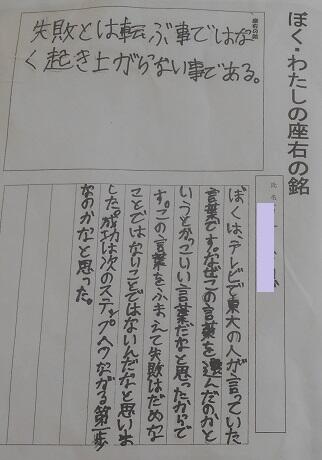 ぼく・わたしの座右の銘
氏名
座右の銘
失敗とは転ぶ事ではな
く起き上がらない事である。
ぼくは、テレビで東大の人が言っていた
言葉です。なぜこの言葉を選んだのかと
いうとかっこいい言葉だなと思ったからで
す。この言葉をふまえて失敗はだめな
ことではないことではないんだなと思いま
した。成功は次のステップへつながる第一歩
なのかなと思った。